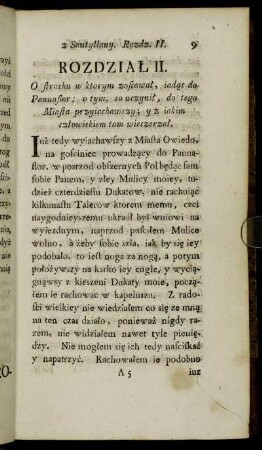 z Santyllany. Rozdz. II. 9
ROZDZIAŁ II.
O strachu w ktorym zostawał, iadąc do
Pannaflor; o tym, co uczynił, do tego
Miasta przyiechawszy; y z iakim
człowiekiem tam wieczerzał.
Iuż tedy wyiachawszy z Miasta Owiedo,
na gościniec prowadzący do Panna-
flor, w posrzod obszernych Pol będąc sam
sobie Panem, y złey Mulicy moiey, tu-
dzież czterdziestu Dukatow, nie rachuiąc
kilkunastu Talerow ktorem memu, czci
naygodnieyszemu ukradł był wuiowi na
wyiezdnym, naprzod puściłem Mulicę
wolno, a żeby sobie szła, iak by się iey
podobało, to iest noga za nogą, a potym
położywszy na karko iey cugle, y wycią-
gnąwsy z kieszeni Dukaty moie, począ-
łem ie rachować w kapeluszu. Z rado-
ści wielkiey nie wiedziałem co się ze mną
na ten czas działo, ponieważ nigdy ra-
zem, nie widziałem nawet tyle pienię-
dzy. Nie mogłem się ich tedy naściskać
y napatrzyć. Rachowałem ie podobno
A 5 iuz